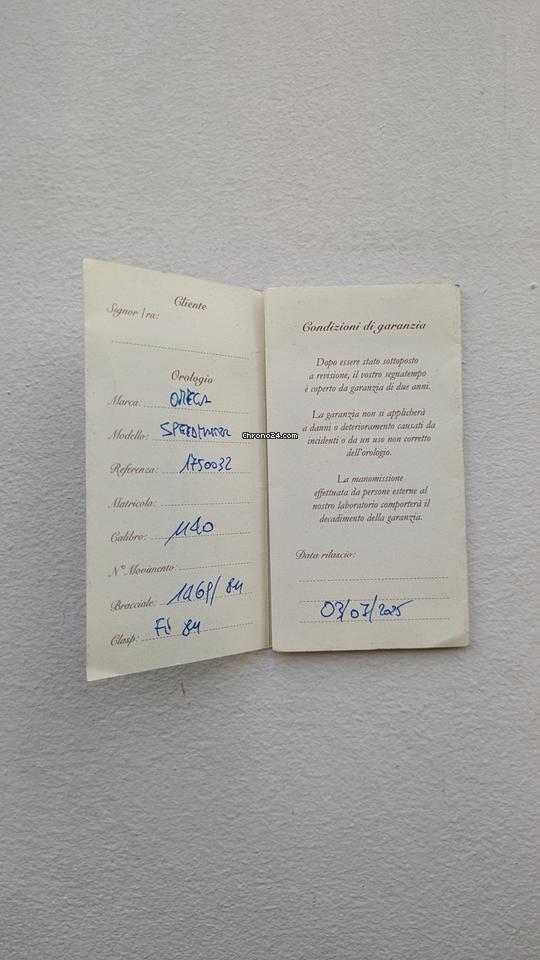 Cliente
Signor / ra:
Orologio
Marca: OMEGA
Modello: SPEEDMASTER
Chrono24.com
Referenza: 1750032
Matricola:
Calibro: 1140
N° Movimento:
Bracciale: 1469/811
Clasp:
Condizioni di garanzia
Dopo essere stato sottoposto
a revisione, il vostro segnatempo
è coperto da garanzia di due anni.
La garanzia non si applicherà
a danni o deterioramento causati da
incidenti o da un uso non corretto
dell'orologio.
La manomissione
effettuata da persone esterne al
nostro laboratorio comporterà il
decadimento della garanzia.
Data rilascio:
03/07/2025